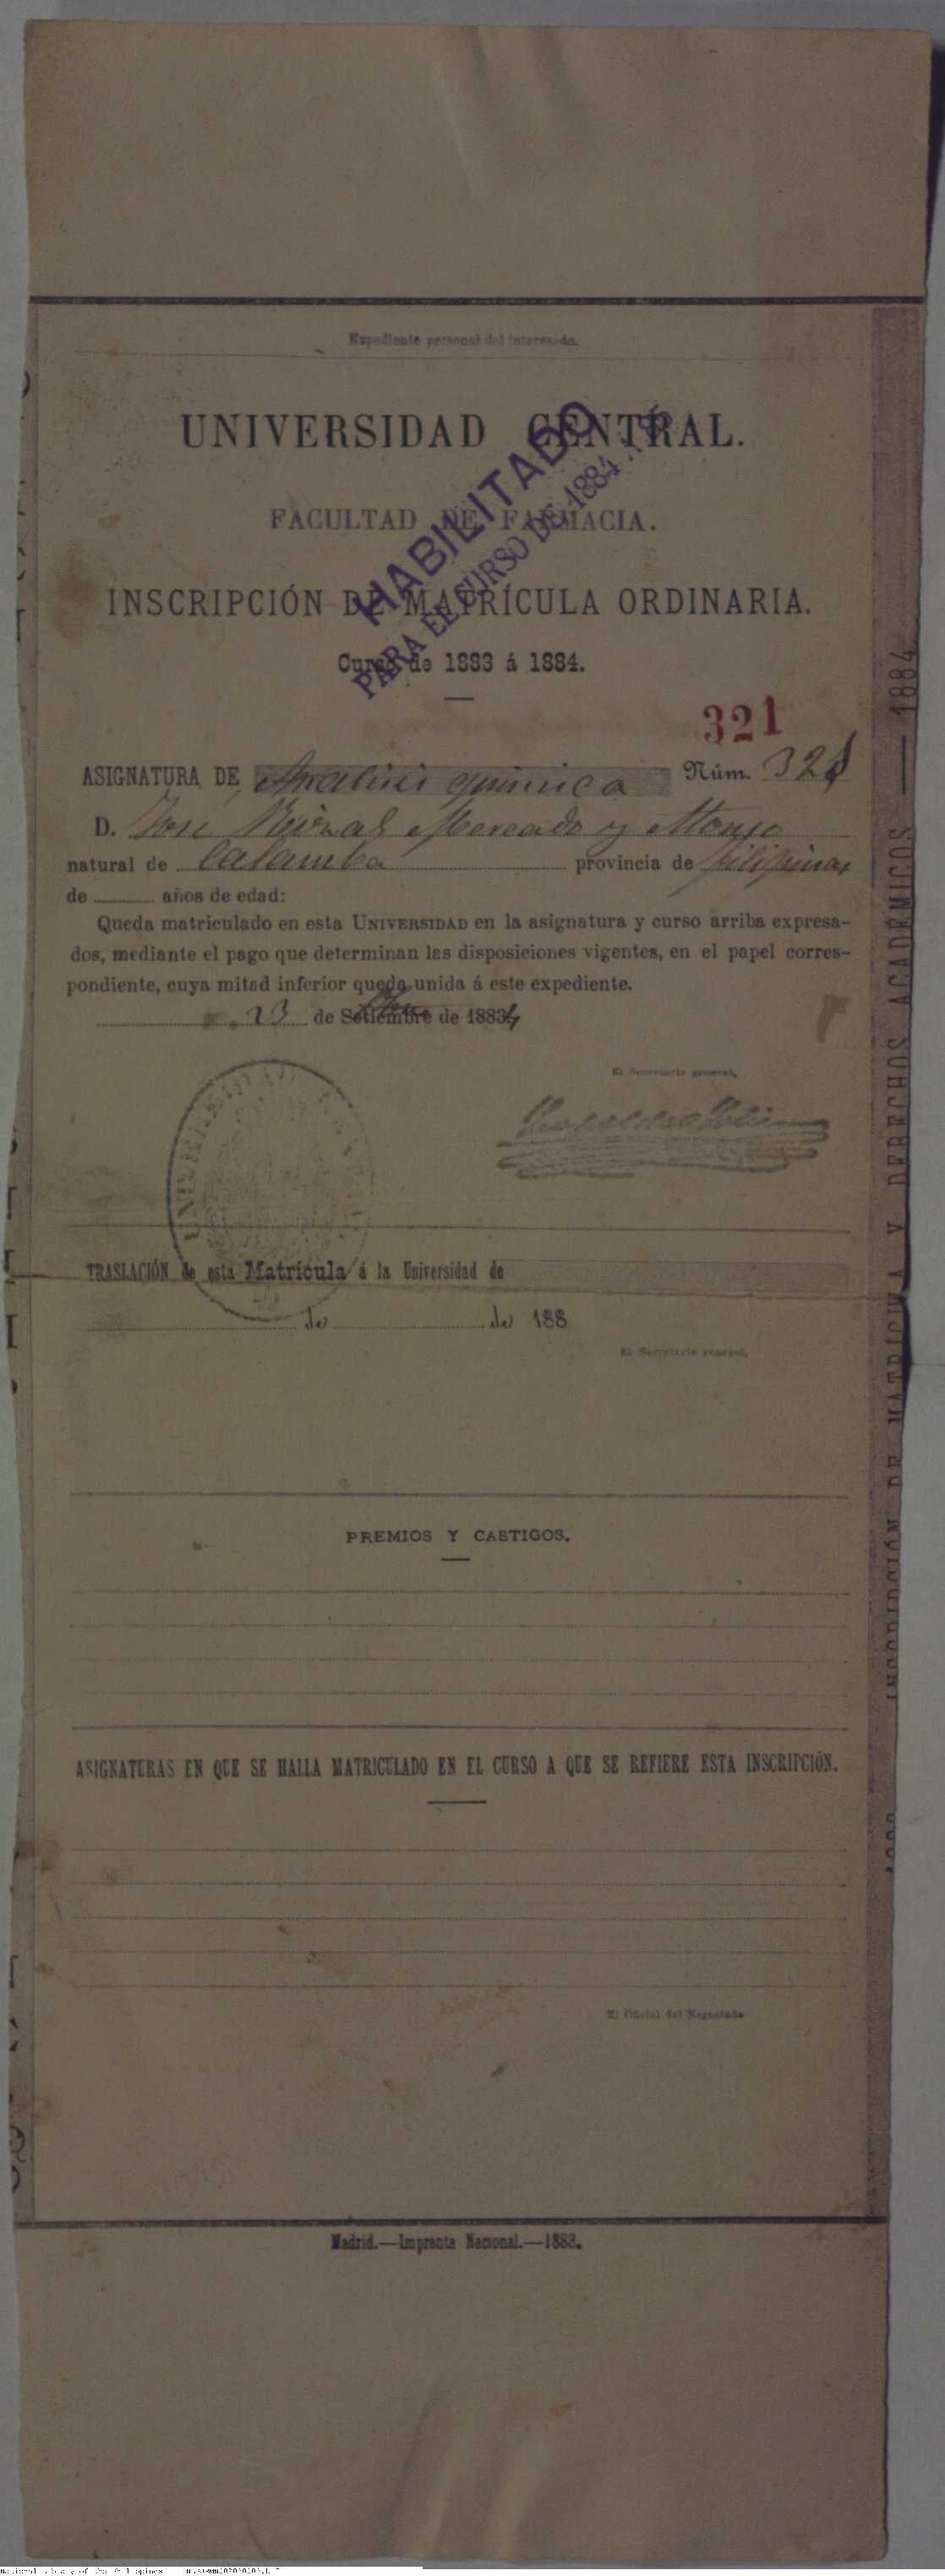 Expediente personal del interesado.
UNIVERSIDAD CENTRAL.
FACULTAD DE FARMACIA.
INSCRIPCIÓN DE MATRÍCULA ORDINARIA.
Curso de 1883 á 1884.
HABILITADO
PARA EL CURSO DE 1884
321
ASIGNATURA DE Analisis quimica Núm. 321
D. Jose Rizal Mercado y Alonso
natural de Calamba provincia de Filipinas
de años de edad:
Queda matriculado en esta UNIVERSIDAD en la asignatura y curso arriba expresa-
dos, mediante el pago que determinan las disposiciones vigentes, en el papel corres-
pondiente, cuya mitad inferior queda unida á este expediente.
23 de Setiembre de 1883 4
El Secretario general,
UNIVERSIDAD
TRASLACIÓN de esta Matrícula á la Universidad de
de de 188
El Secretario general,
PREMIOS Y CASTIGOS.
ASIGNATURAS EN QUE SE HALLA MATRICULADO EN EL CURSO A QUE SE REFIERE ESTA INSCRIPCIÓN.
El Oficial del Negociado
Madrid.—Imprenta Nacional.—1883.
INSCRIPCIÓN DE MATRÍCULA Y DERECHOS ACADÉMICOS — 1884
National Library of the Philippines